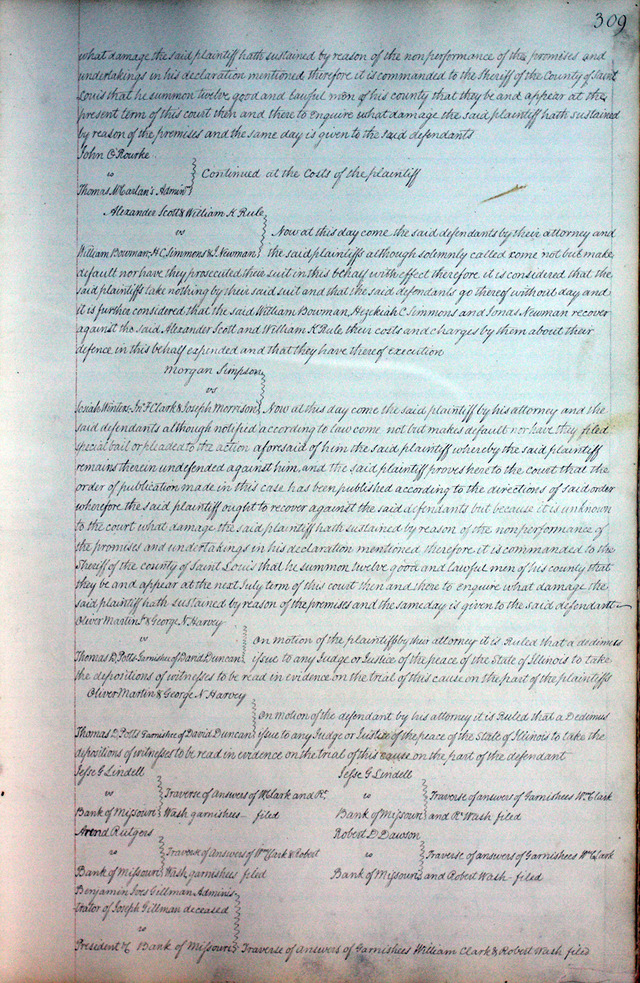 309
what damage the said plaintiff hath sustained by reason of the nonperformance of the promises and
undertakings in his declaration mentioned therefore it is commanded to the Sheriff of the County of Saint
Louis that he summon twelve good and lawful men of his county that they be and appear at the
present term of this court then and there to enquire what damage the said plaintiff hath sustained
by reason of the premises and the same day is given to the said defendants
John O Rourke
vs
Continued at the Costs of the plaintiff
Thomas McCarlan's Admin
Alexander Scott & William K Rule
vs
Now at this day come the said defendants by their attorney and
William Bowman, H.C. Simmons & J. Newman
the said plaintiffs although solemnly called come not but make
default nor have they prosecuted their suit in this behalf with effect therefore it is considered that the
said plaintiffs take nothing by their said suit and that the said defendants go thereof without day and
it is further considered that the said William Bowman Hezekiah C Simmons and Jonas Newman recover
against the said Alexander Scott and William K Rule their costs and charges by them about their
defence in this behalf expended and that they have thereof execution
Morgan Simpson
vs
Josiah Winters, Jn. F Clark & Joseph Morrison
Now at this day come the said plaintiff by his attorney and the
said defendants although notified according to law come not but makes default nor have they filed
special bail or pleaded to the action aforesaid of him the said plaintiff whereby the said plaintiff
remains therein undefended against him, and the said plaintiff proves here to the court that the
order of publication made in this case has been published according to the directions of said order
wherefore the said plaintiff ought to recover against the said defendants but because it is unknown
to the court what damage the said plaintiff hath sustained by reason of the nonperformance of
the promises and undertakings in his declaration mentioned therefore it is commanded to the
Sheriff of the county of Saint Louis that he summon twelve good and lawful men of his county that
they be and appear at the next July term of this court then and there to enquire what damage the
said plaintiff hath sustained by reason of the premises and the same day is given to the said defendant
Oliver Martin & George N. Harvey
vs
On motion of the plaintiffs by their attorney it is Ruled that a dedimus
Thomas D. Potts Garnishee of David Duncan
issue to any Judge or Justice of the peace of the State of Illinois to take
the depositions of witnesses to be read in evidence on the trial of this cause on the part of the plaintiffs
Oliver Martin & George N. Harvey
On motion of the defendant by his attorney it is Ruled that a Dedimus
Thomas D. Potts Garnishee of David Duncan
issue to any Judge or Justice of the peace of the State of Illinois to take the
depositions of witnesses to be read in evidence on the trial of this cause on the part of the defendant
Jesse G Lindell
vs
Traverse of answers of Wm Clark and Rt.
Bank of Missouri
Wash garnishees filed
Jesse G Lindell
vs
Traverse of answers of Garnishees Wm Clark
Bank of Missouri
and Rt. Wash filed
Arend Rutgers
vs
Traverse of answers of Wm Clark & Robert
Bank of Missouri
Wash garnishees filed
Robert D Dawson
vs
Traverse of answers of Garnishees Wm Clark
Bank of Missouri
and Robert Wash filed
Benjamin Ives Gillman Adminis
trator of Joseph Gillman deceased
vs
President &c Bank of Missouri
Traverse of answers of Garnishees William Clark & Robert Wash filed